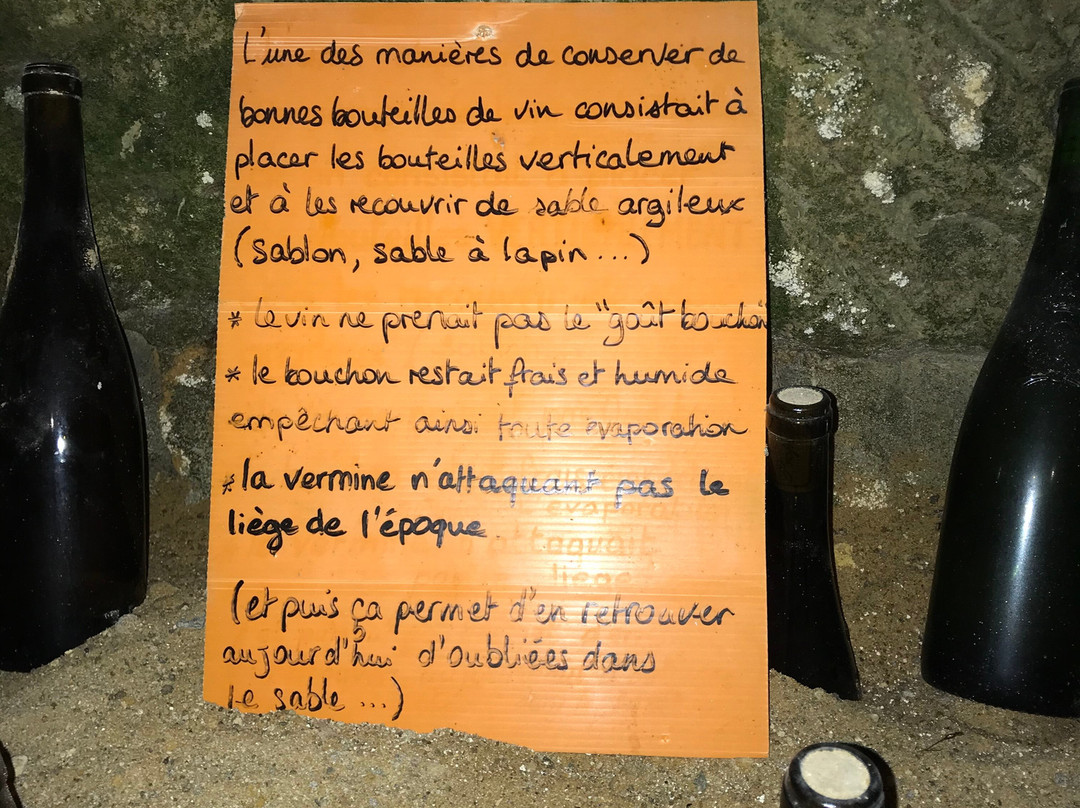 L'une des manières de conserver de
bonnes bouteilles de vin consistait à
placer les bouteilles verticalement
et à les recouvrir de sable argileux
(sablon, sable à lapin...)
* le vin ne prenait pas le "goût bouchon"
* le bouchon restait frais et humide
empêchant ainsi toute évaporation
* la vermine n'attaquant pas le
liège de l'époque
(et puis ça permet d'en retrouver
aujourd'hui d'oubliées dans
le sable ...)